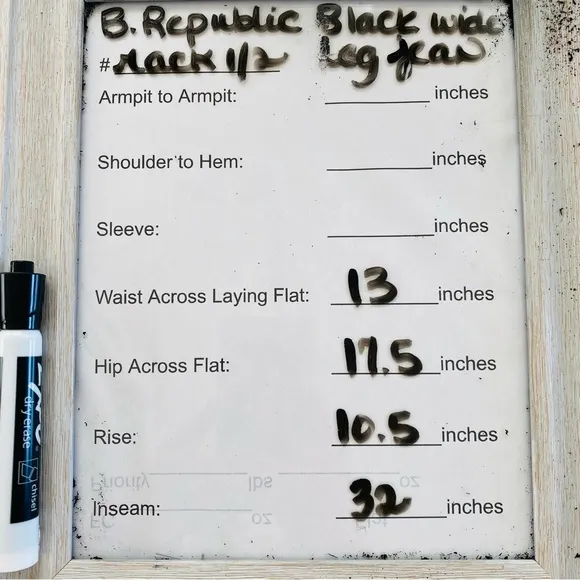 B. Republic Black wide
# Rack 1/2 Leg jean
Armpit to Armpit: inches
Shoulder to Hem: inches
Sleeve: inches
Waist Across Laying Flat: 13 inches
Hip Across Flat: 17.5 inches
Rise: 10.5 inches
Priority lbs oz
Inseam: 32 inches
oz
dry erase
chisel